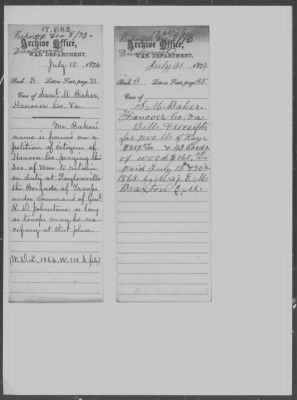 17.682
Archive Office,
WAR DEPARTMENT,
July 15, 1874
Book B. Letters Sent, page 33.
Case of Saml. H. Baker,
Hanover Co. Va.
Mr. Baker's
name is found on a
petition of citizens of
Hanover Co. praying the
Sec. of War to retain
on duty at Taylorsville
the Brigade of Troops
under command of Genl.
R. D. Johnston as long
as troops may be ne-
cessary at that place.
(W. D. 1864. W. 116
Archive Office,
WAR DEPARTMENT,
July 21, 1874
Book B Letters Sent, page 35
Case of
S. M. Baker,
Hanover Co., Va
Bill & receipt
for
of Hay
& 43 Cords
of wood $160,
paid July
1863, by Maj. E. M.
Braxton